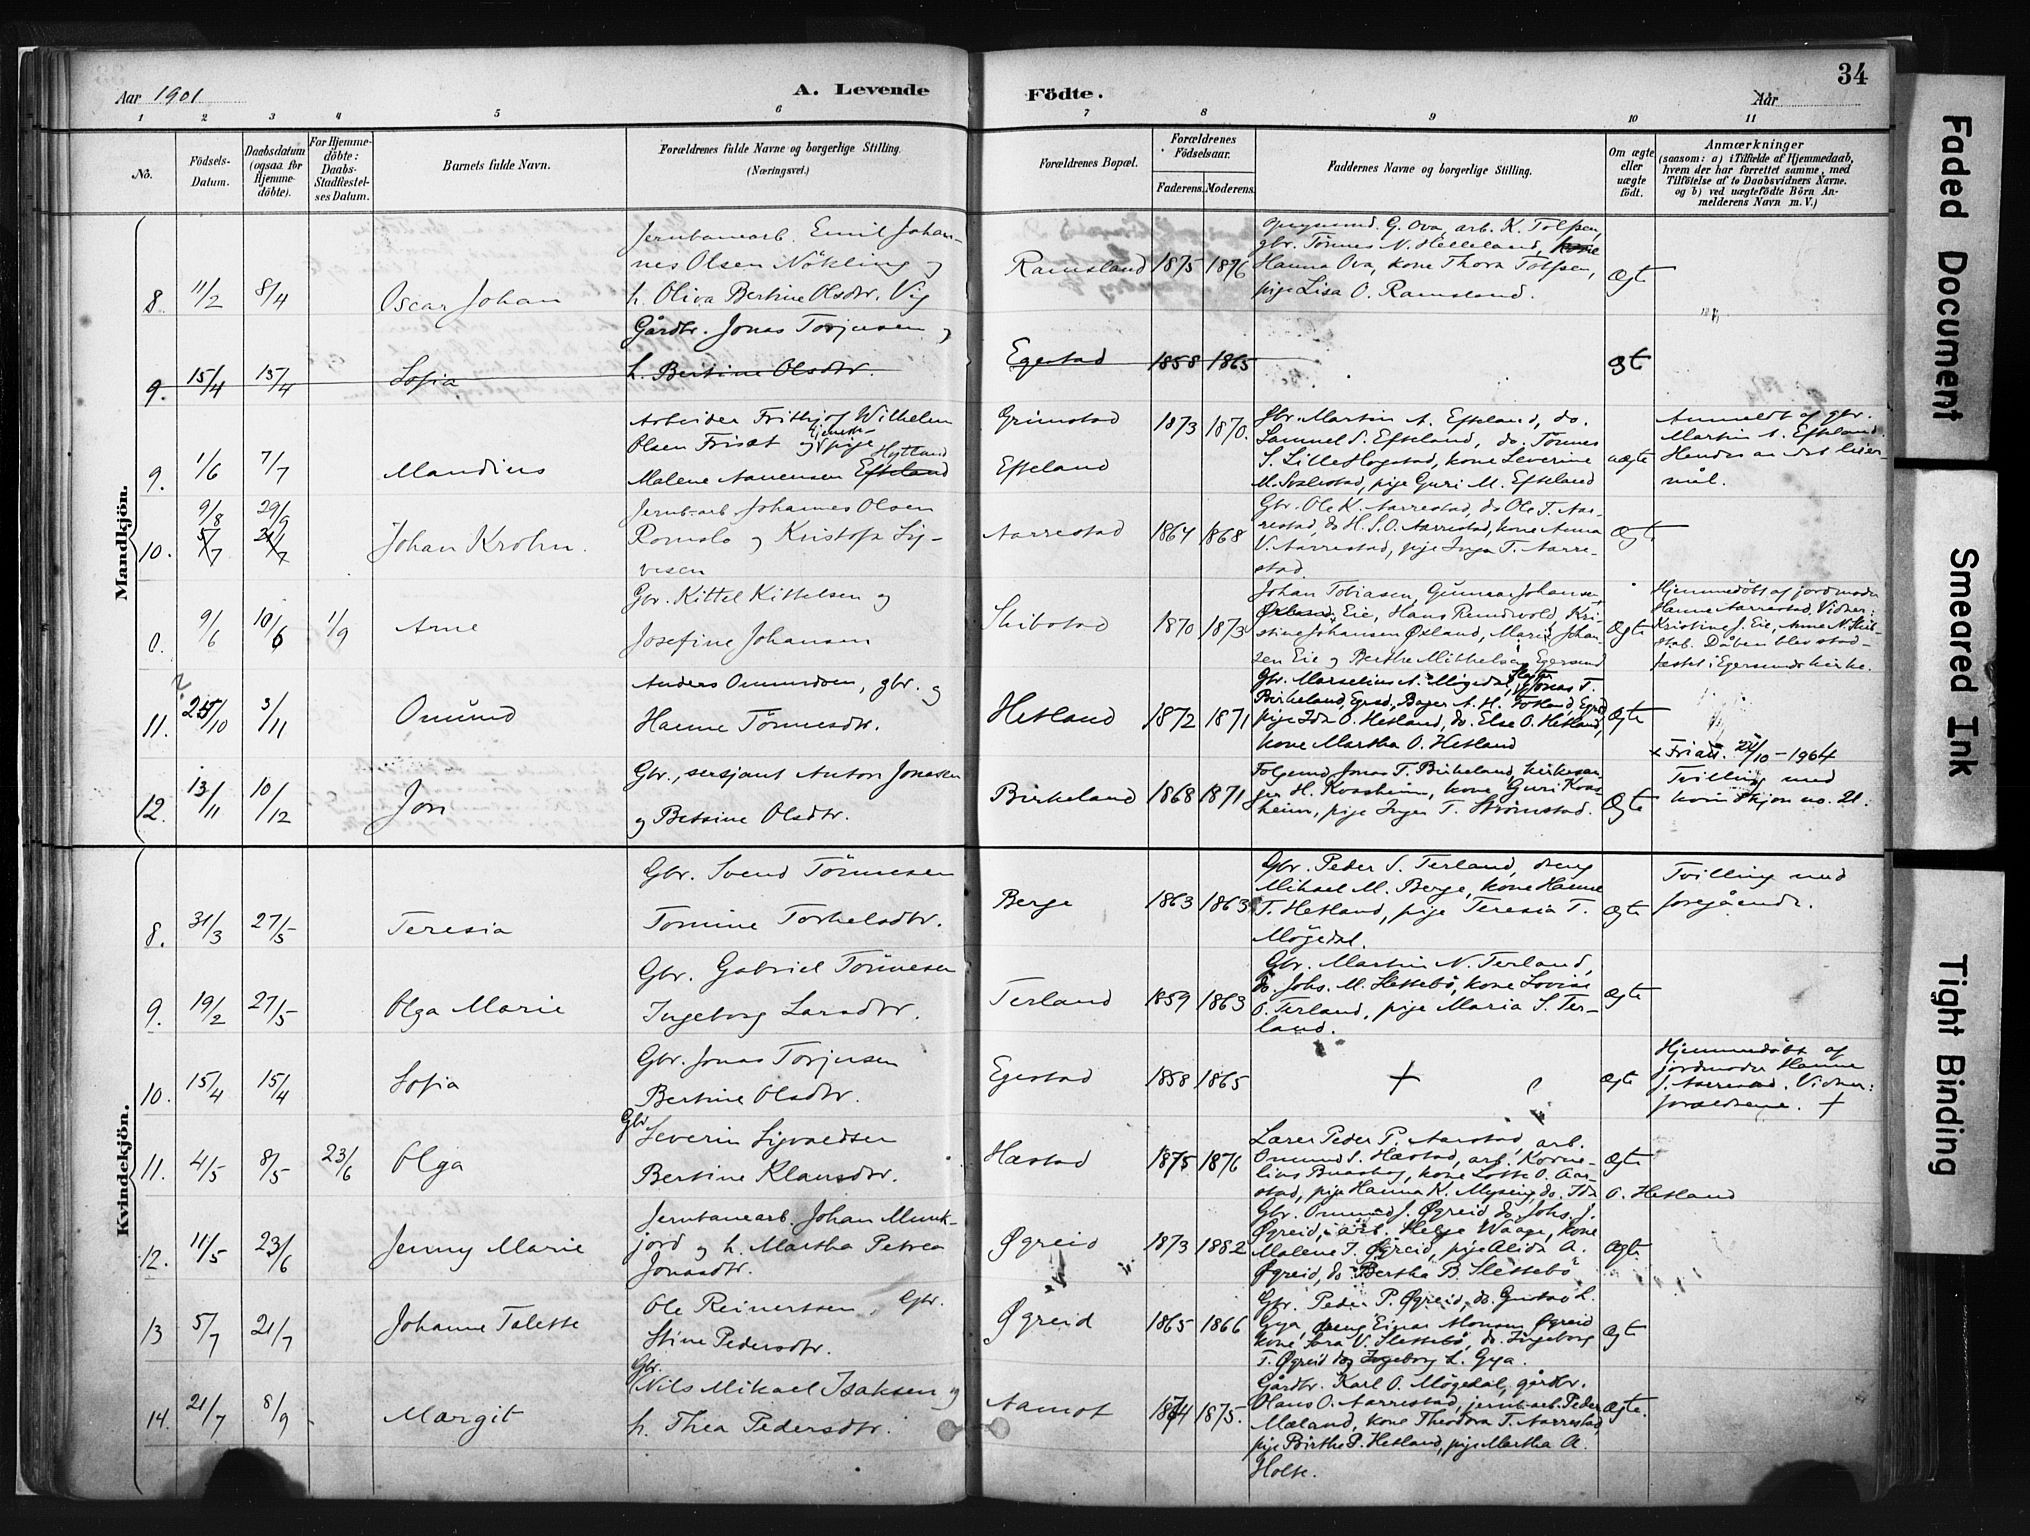 Aar 1901
A. Levende
Födte.
Aar
34
1 2 3 4 5 6 7 8 9 10 11
No.
Födsels-
Datum.
Daabsdatum
(ogsaa for
Hjemme-
döbte).
For Hjemme-
döbte:
Daabs-
Stadfæstel-
ses Datum.
Barnets fulde Navn.
Forældrenes fulde Navne og borgerlige Stilling.
(Næringsvei.)
Forældrenes Bopæl.
Forældrenes
Födselsaar.
Faderens. Moderens.
Faddernes Navne og borgerlige Stilling.
Om ægte
eller
uægte
födt.
Anmærkninger
(saasom: a) i Tilfælde af Hjemmedaab,
hvem der har forrettet samme, med
Tilföielse af to Daabsvidners Navne.
og b) ved uægtefödte Börn An-
melderens Navn m. V.)
Mandkjön.
8 11/2 8/4 Oscar Johan
Jernbanearb. Emil Johan-
nes Olsen Nökling og
h. Oliva Bertine Olsdtr. Vig
Ramsland 1875 1876
G. Ova, arb. K. Tolfsen,
gbr. Tönnes N. Helleland, kone
Hanna Ova, kone Thora Tolfsen,
pige Lisa O. Ramsland.
Ægte
9. 15/4 15/4 Sofia
Gårdbr. Jonas Torjusen og
h. Bertine Olsdtr.
Egestad 1858 1865
Ægt
9. 1/6 7/7 Mandius
Arbeider Frithjof Wilhelm
Olsen Frisæt og pige
Malene Aanensen Efteland
Hytland
Grimstad
Efteland
1873 1870.
Gbr. Martin A. Efteland, do.
Samuel S. Efteland, do. Tönnes
S. Lille Hogstad, kone Severine
M. Svalestad, pige Guri M. Efteland
uægte
Anmeldt af gbr.
Martin A. Efteland.
Hendes an det leier-
mål.
10. 9/8 29/9
5/7 21/7
Johan Krohn.
Jernb.arb Johannes Olsen
Romslo og Kristofa Sig-
vesen
Aarrestad 1864 1868
Gbr. Ole K. Aarrestad, do Ole T. Aar-
restad, do H. S. O. Aarrestad, kone Anna
V. Aarrestad, pige Inga T. Aarre-
stad.
Ægte
0. 9/6 10/6 1/9 Arne
Gbr. Kittel Kittelsen og
Josefine Johansen
Skibstad 1870 1873
Johan Tobiasen, Gunnar Johansen,
Øxland, Eie, Hans Rundvold, Kri-
stine Johansen Øxland, Marie Johan-
sen Eie og Berthe Mikkelsen Egersund
Ægte
Hjemmedöbt af jordmoder
Hanne Aarrestad. Vidner:
Kristine J. Eie, Anne N. Skib-
stad. Dåben blev stad-
fæstet i Egersunds kirke.
11. 25/10 3/11 Omund
Anders Omundsen, gbr. og
Hanne Tönnesdtr.
Hetland 1872 1871
Gbr. Marselius A. Mögedal, Jonas T.
Birkeland, Egsd, Bager A. H. Totland Egsd,
pige Ida O. Hetland, do. Else O. Hetland,
kone Martha O. Hetland
Ægte
12. 13/11 10/12 Jon
Gbr., sersjant Anton Jonassen
og Betsine Olsdtr.
Birkeland 1868 1871
Folgemd Jonas T. Birkeland, kirkesan-
ger H. Kossheim, kone Guri Koss-
heim, pige Inger T. Strömstad.
Ægte
22/10 - 1964
Tvilling med
kvindekjön no. 21.
Kvindekjön.
8. 31/3 27/5 Teresia
Gbr. Svend Tönnesen
Tomine Torkelsdtr.
Berge 1863 1863
Gbr. Peder S. Terland, dreng
Mikael M. Berge, kone Hanne
T. Hetland, pige Teresia T.
Mögedal.
Ægte
Tvilling med
foregående.
9. 19/2 27/5 Olga Marie
Gbr. Gabriel Tönnesen
Ingeborg Larsdtr.
Terland 1859 1863
Gbr. Martin N. Terland,
do. Johs. M. Hettebö, kone Lovise
O. Terland, pige Maria S. Ter-
land.
Ægte
10. 15/4 15/4 Sofia
Gbr. Jonas Torjusen
Bertine Olsdtr.
Egestad 1858 1865
+
Ægte
Hjemmedöbt af
jordmoder Hanne
J. Aarrestad. Vidner:
forældrene. +
11. 4/5 8/5 23/6 Olga
Gbr
Severin Sigvaldsen
Bertine Klausdtr.
Hæstad 1875 1876
Lærer Peder P. Aarstad, arb.
Omund S. Hæstad, arb. Korne-
lius Buasbog, kone Lotte O. Aar-
stad, pige Hanna K. Mysing, do. Ida
O. Hetland
Ægte
12. 11/5 23/6 Jenny Marie
Jernbanearb. Johan Munk-
jord og h. Martha Petrea
Jonasdtr.
Øgreid 1873 1882
Gbr. Omund J. Øgreid, do. Johs. J.
Øgreid, arb. Helge Waage, kone
Malene T. Øgreid, pige Alida A.
Øgreid, do Bertha B. Slettebö
Ægte
13 5/7 21/7 Johanne Talette
Ole Reinertsen, Gbr.
Stine Pedersdtr.
Øgreid 1865 1866
Gbr. Peder P. Øgreid, do. Gustav L.
Gya, dreng Einar Monsen Øgreid
kone Sara V. Slettebö, do. Ingeborg
T. Øgreid do Ingeborg L. Gya.
Ægte
14. 21/7 8/9 Margit
Gbr.
Nils Mikael Isaksen og
h. Thea Pedersdtr.
Aamot 1874 1875.
Gårdbr. Karl O. Mögedal, gårdbr.
Olaus O. Aarrestad, jernb.arb. Peder
Mæland, kone Theodora T. Aarrestad,
pige Birthe P. Hetland, pige Martha A.
Holte.
Ægte.
Faded Document
Smeared Ink
Tight Binding